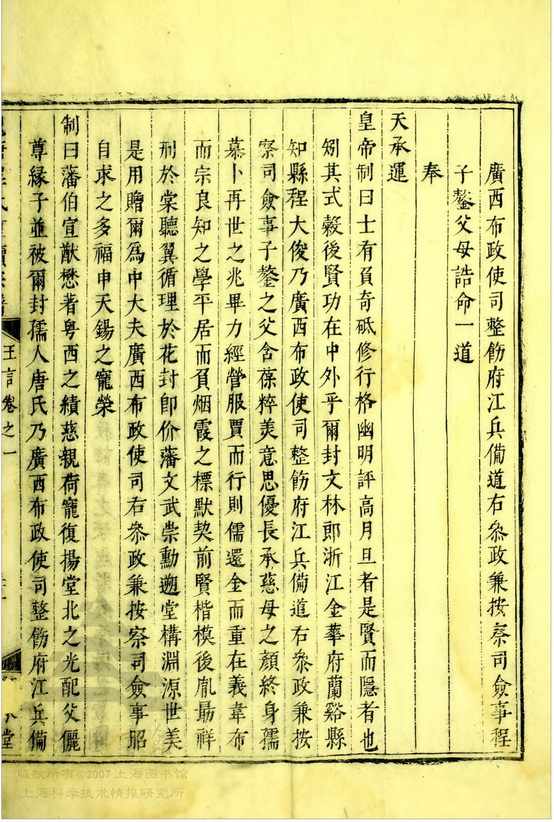 廣西布政使司整飭府江兵備道右叅政兼按察司僉事程
子鏊父母誥命一道
奉
天承運
皇帝制曰士有負奇砥修行格幽明評高月旦者是賢而隱者也
矧其式穀後賢功在中外乎爾封文林郎浙江金華府蘭谿縣
知縣程大俊乃廣西布政使司整飭府江兵備道右叅政兼按
察司僉事子鏊之父含葆粹美意思優長承慈母之顏終身孺
慕卜再世之兆畢力經營服賈而行則儒還金而重在義韋布
而宗良知之學平居而負烟霞之標默契前賢楷模後胤勗祥
刑於棠聽翼循理於花封卽价藩文武崇勳遡堂構淵源世美
是用贈爾爲中大夫廣西布政使司右叅政兼按察司僉事昭
自求之多福申天錫之寵榮
制曰藩伯宣猷懋著粤西之績慈親荷寵復揚堂北之光配父儷
尊緣子並被爾封孺人唐氏乃廣西布政使司整飭府江兵備
王言卷之一
堂
版权所有©2007上海图书馆
上海科学技术情报研究所